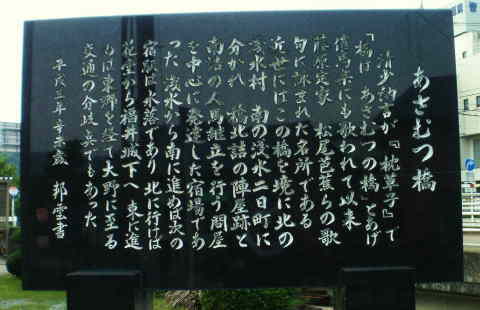 あさむつ橋
清少納言が『枕草子』で
「橋は あさむつの橋」とあげ
催馬楽にも歌われて以来
藤原定家 松尾芭蕉らの歌
句に詠まれた名所である
近世にはこの橋を境に北の
浅水村 南の浅水二日町に
分かれ 橋北詰の陣屋跡と
南詰の人馬継立を行う問屋
を中心に発達した宿場であ
った 浅水から南に進めば次の
宿駅は水落であり 北に行けば
花堂から福井城下へ 東に進
めば東郷を経て大野に至る
交通の分岐点でもあった
平成三年辛未歳 邦堂書